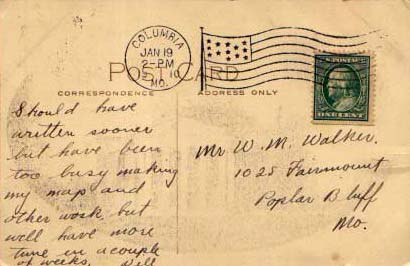 COLUMBIA
JAN 19
2-PM
10
MO.
U.S. POSTAGE
ONE CENT
POST CARD
CORRESPONDENCE
ADDRESS ONLY
Should have
written sooner
but have been
too busy making
my map and
other work but
will have more
time in a couple
of weeks. Will
Mr W. M. Walker.
1025 Fairmount
Poplar Bluff
Mo.